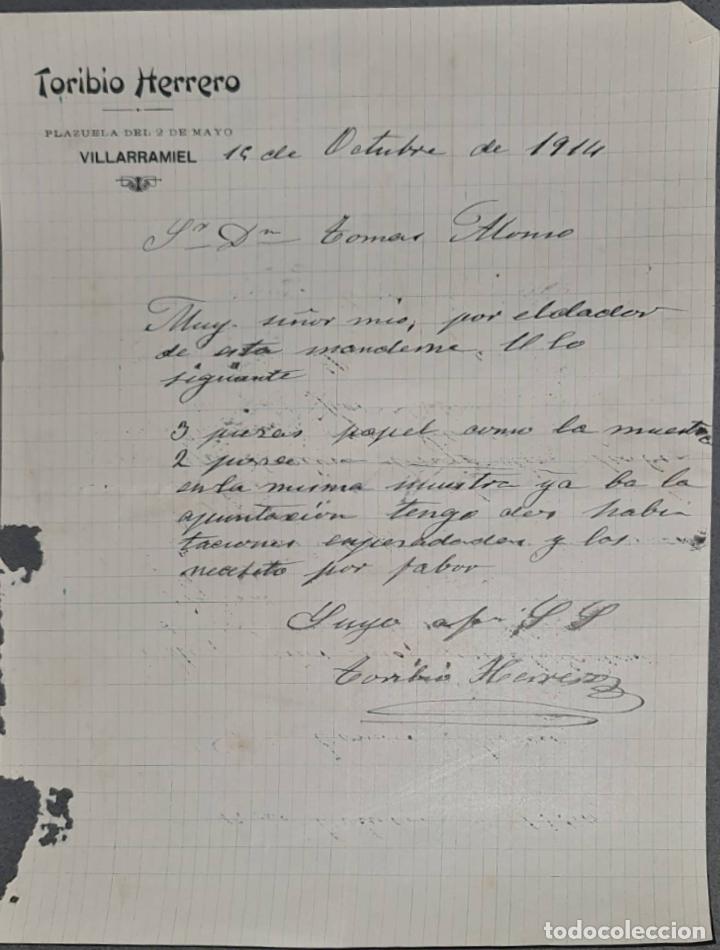 Toribio Herrero
PLAZUELA DEL 2 DE MAYO
VILLARRAMIEL 15 de Octubre de 1914
Sr Dn Tomas Alonso
Muy señor mio, por eldador
de esta mandeme U lo
siguiante
3 piezas papel como la muestra
2
en la misma muestra ya ba la
apuntación tengo dos habi
taciones enpezadas y los
necesito por fabor
Suyo afmo S S
Toribio Herrero
todocoleccion